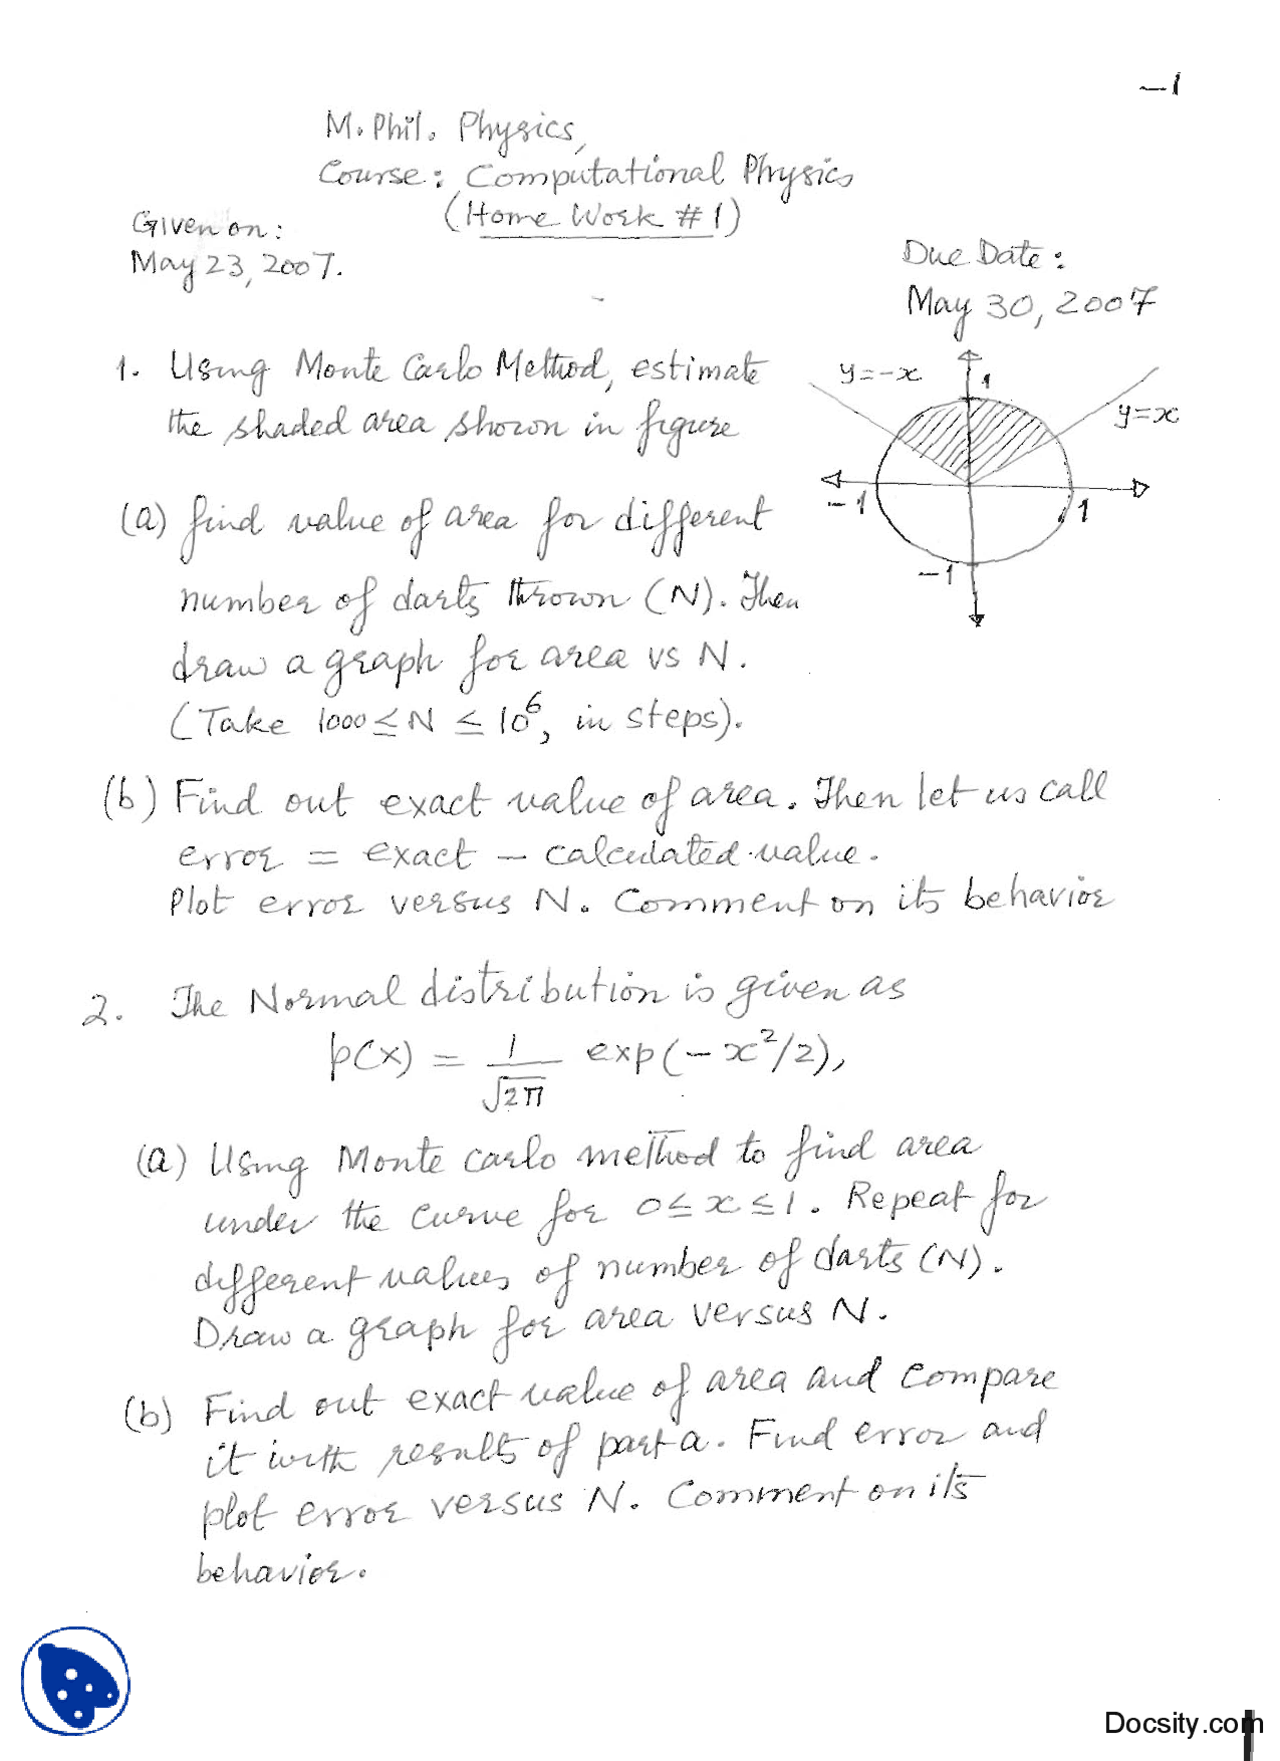 -1
M.Phil. Physics,
Course: Computational Physics
(Home Work #1)
Given on:
May 23, 2007.
Due Date:
May 30, 2007
1. Using Monte Carlo Method, estimate
the shaded area shown in figure
y=-x
1
y=x
-1
1
-1
(a) find value of area for different
number of darts thrown (N). Then
draw a graph for area vs N.
(Take 1000 ≤ N ≤ 10⁶, in steps).
(b) Find out exact value of area. Then let us call
error = exact - calculated value.
Plot error versus N. Comment on its behavior
2. The Normal distribution is given as
p(x) = 1/√2π exp(-x²/2),
(a) Using Monte Carlo method to find area
under the curve for 0≤x≤1. Repeat for
different values of number of darts (N).
Draw a graph for area versus N.
(b) Find out exact value of area and compare
it with results of part a. Find error and
plot error versus N. Comment on its
behavior.
Docsity.com